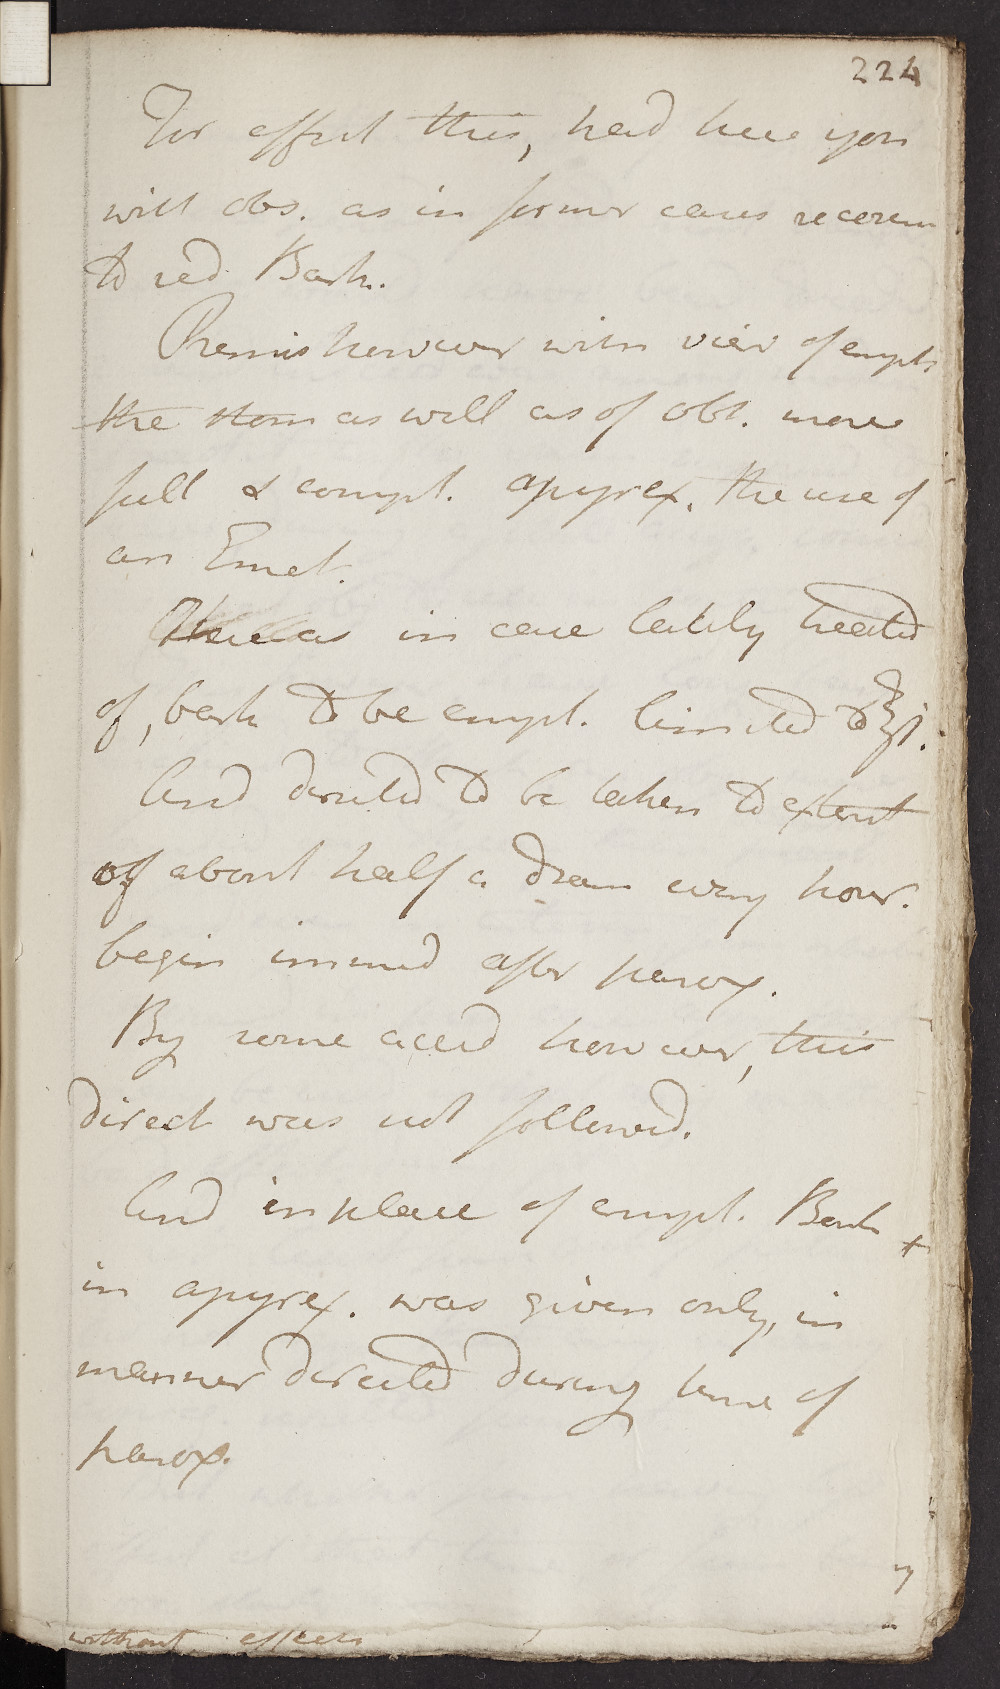 224
For effect this, had here you
will obs. as in former cases recours
to red Bark.
Premis however with view of empt
the stom as well as of obt. more
full & compl. apyrex. the use of
an Emet.
There as in case lately treated
of, bark to be empl. limited to ℥i.
And directed to be taken to extent
of about half a dram every hour.
begin immed after parox.
By some accid however, this
direct was not followed.
And in place of empl. Bark +
in apyrex. was given only, in
manner directed during time of
parox.
without effects